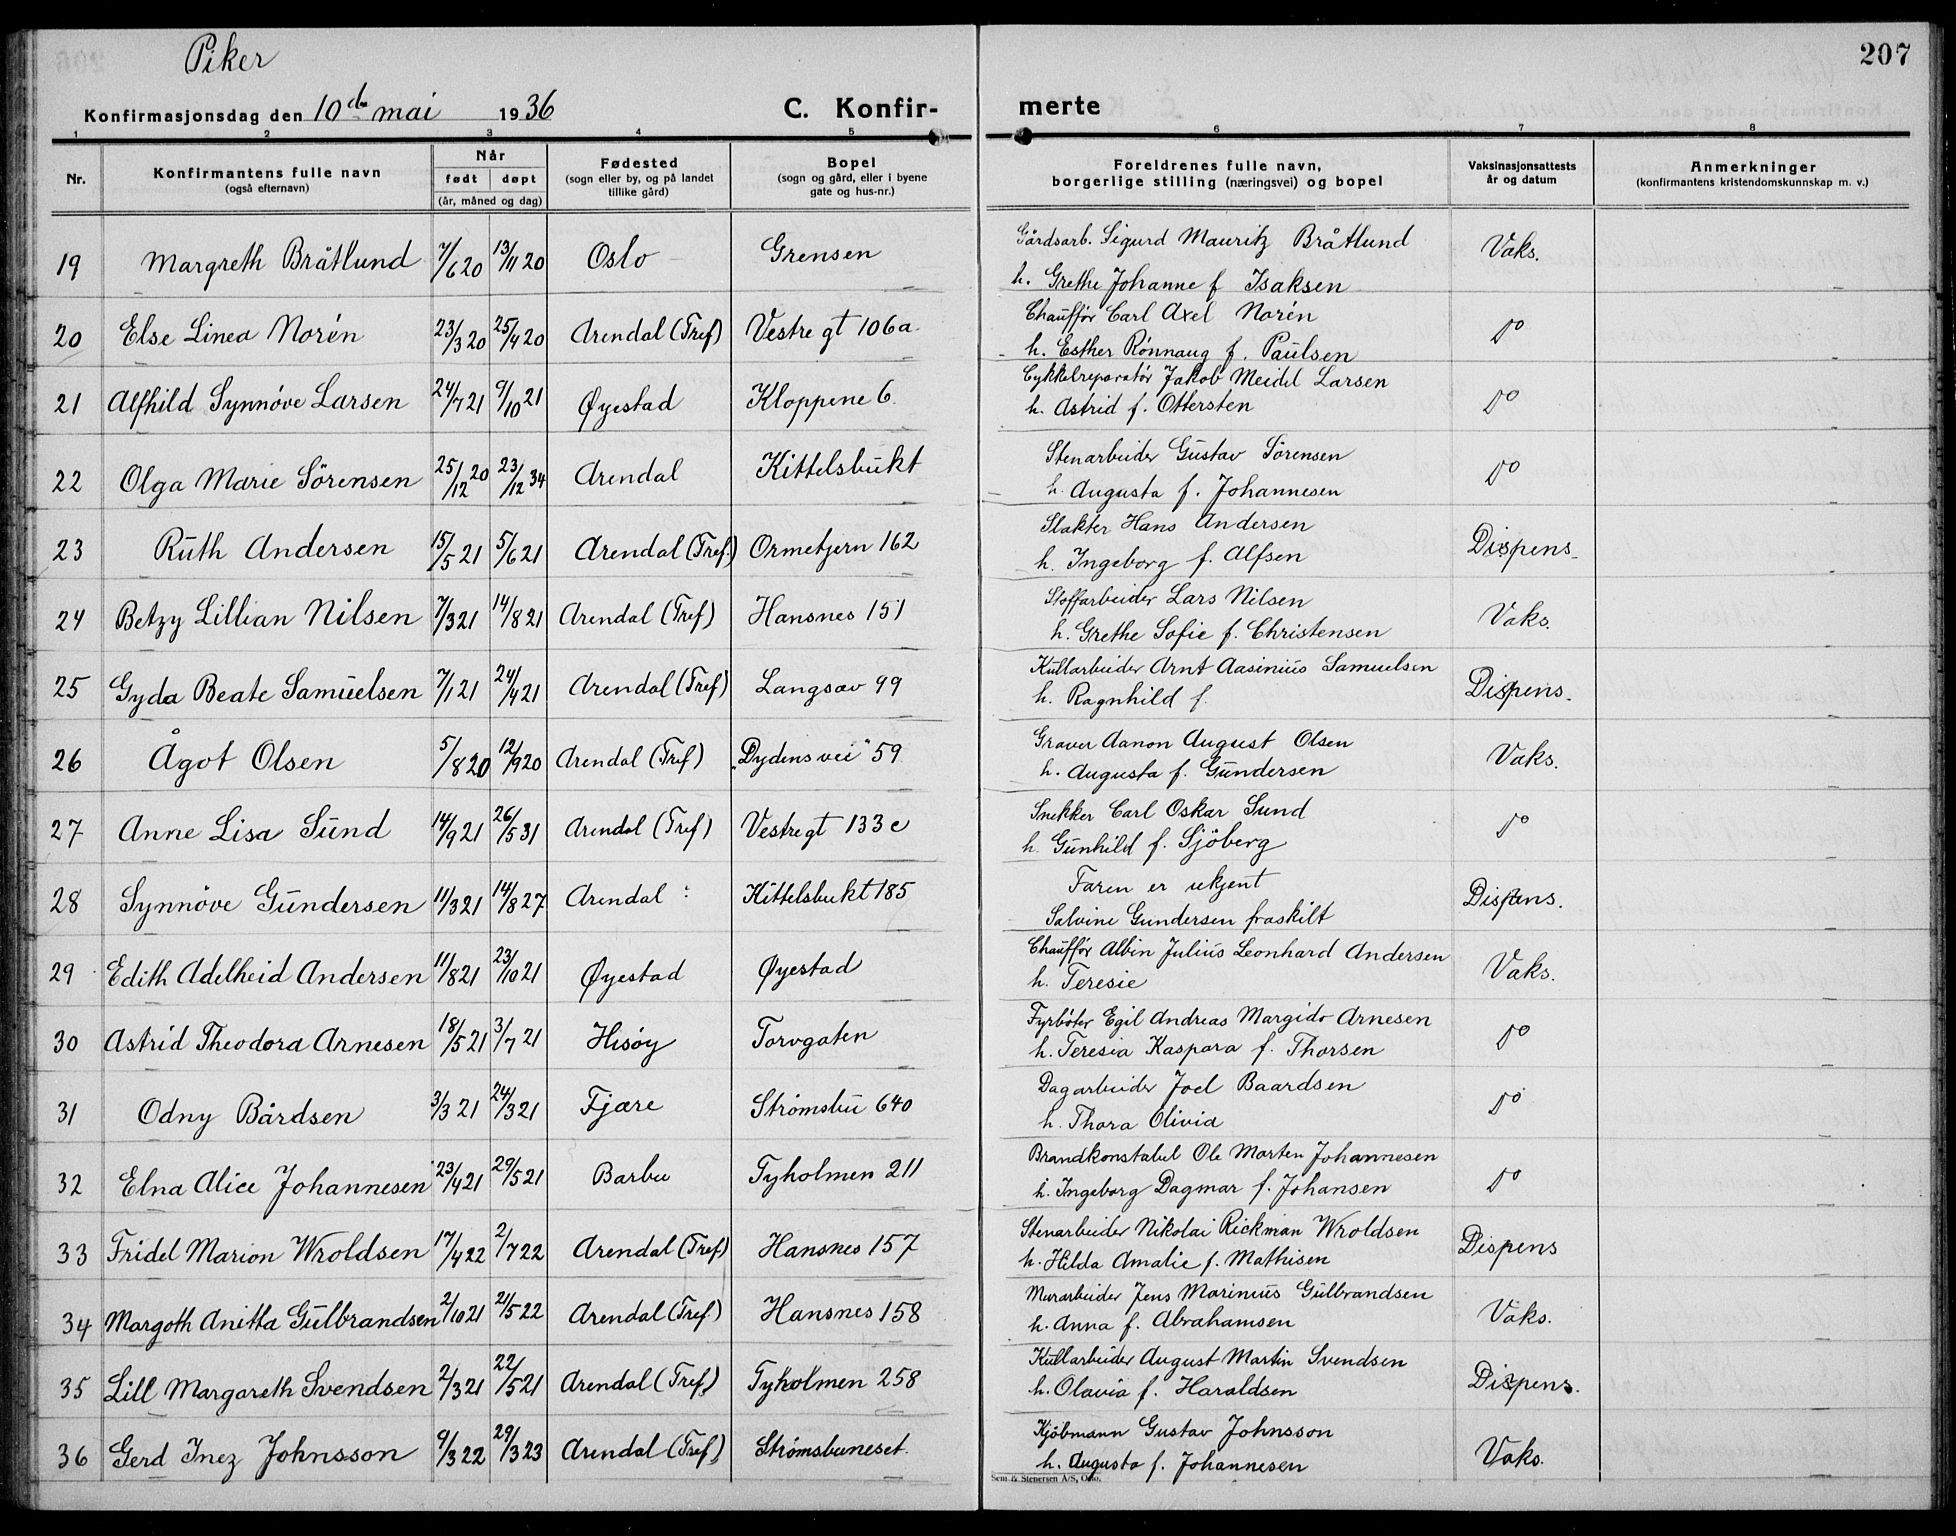 Piker
207
Konfirmasjonsdag den 10de mai 1936 C. Konfir- merte
1 2 3 4 5 6 7 8
Nr. Konfirmantens fulle navn (også efternavn) Når født døpt (år, måned og dag) Fødested (sogn eller by, og på landet tillike gård) Bopel (sogn og gård, eller i byene gate og hus-nr.) Foreldrenes fulle navn, borgerlige stilling (næringsvei) og bopel Vaksinasjonsattests år og datum Anmerkninger (konfirmantens kristendomskunnskap m. v.)
19 Margreth Bråtlund 7/6 20 13/11 20 Oslo Grensen Gårdsarb. Sigurd Mauritz Bråtlund Vaks.
h. Grethe Johanne f Isaksen
20 Else Linea Norén 23/3 20 25/4 20 Arendal (Tref) Vestre gt 106a. Chauffør Carl Axel Norén do
h. Esther Rønnaug f. Paulsen
21 Alfhild Synnøve Larsen 24/7 21 9/10 21 Øyestad Kloppene 6. Cykkelreparatør Jakob Meidel Larsen do
h. Astrid f. Ottersten
22 Olga Marie Sörensen 25/12 20 23/12 34 Arendal Kittelsbukt Stenarbeider Gustav Sørensen do
h. Augusta f. Johannesen
23 Ruth Andersen 15/5 21 5/6 21 Arendal (Tref.) Ormetjern 162 Slakter Hans Andersen Dispens.
h. Ingeborg f. Alfsen
24 Betzy Lillian Nilsen 7/3 21 14/8 21 Arendal (Tref) Hansnes 151 Stoffarbeider Lars Nilsen Vaks.
h. Grethe Sofie f. Christensen
25 Gyda Beate Samuelsen 7/1 21 24/4 21 Arendal (Tref) Langsæv 99 Kullarbeider Arnt Aasinius Samuelsen Dispens.
h. Ragnhild f.
26 Ågot Olsen 5/8 20 12/9 20 Arendal (Tref) "Dydens vei" 59 Graver Aanon August Olsen Vaks.
h. Augusta f. Gundersen
27 Anne Lisa Sund 14/9 21 26/5 31 Arendal (Tref) Vestregt 133 c Snekker Carl Oskar Sund do
h. Gunhild f. Sjöberg
28 Synnöve Gundersen 11/3 21 14/8 27 Arendal : Kittelsbukt 185 Faren er ukjent Dispens.
Salvine Gundersen fraskilt
29 Edith Adelheid Andersen 11/8 21 23/10 21 Øyestad Øyestad Chauffør Albin Julius Leonhard Andersen Vaks.
h. Teresie
30 Astrid Theodora Arnesen 18/5 21 3/7 21 Hisøy Torvgaten Fyrbøter Egil Andreas Margido Arnesen do
h. Teresia Kaspara f. Thorsen
31 Odny Bårdsen 3/3 21 24/3 21 Fjære Strømsbu 640 Dagarbeider Joel Baardsen do
h. Thora Olivia
32 Elna Alice Johannesen 23/4 21 29/5 21 Barbu Tyholmen 211 Brandkonstabel Ole Morten Johannesen do
h. Ingeborg Dagmar f. Johansen
33 Fridel Marion Wroldsen 17/4 22 2/7 22 Arendal (Tref) Hansnes 157 Stenarbeider Nikolai Rickman Wroldsen Dispens
h. Hilda Amalie f. Mathisen
34 Margoth Anitta Gulbrandsen 2/10 21 21/5 22 Arendal (Tref.) Hansnes 158 Murarbeider Jens Marinius Gulbrandsen Vaks.
h. Anna f. Abrahamsen
35 Lill Margareth Svendsen 2/3 21 22/5 21 Arendal (Tref.) Tyholmen 258 Kullarbeider August Martin Svendsen Dispens.
h. Olavia f. Haraldsen
36 Gerd Inez Johnsson 9/3 22 29/3 23 Arendal (Tref.) Strømsbuneset. Kjöbmann Gustav Johnsson Vaks.
h. Augusta f. Johannesen
Sem & Stenersen A/S, Oslo.